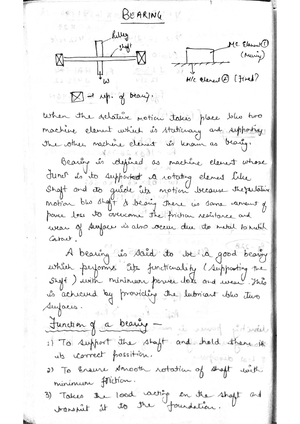 BEARING
Pulley
shaft
M/C Element ①
(Moving)
W
M/C Element ② (Fixed)
→ rep. of bearing.
When the relative motion takes place b/w two
machine element which is stationary and supporting
the other machine element is known as bearing.
Bearing is defined as machine element whose
funcⁿ is to support a rotating element like
shaft and to guide its motion because the relative
motion b/w shaft & bearing there is some amount of
power loss to overcome the friction resistance and
wear of surfaces is also occur due to metal to metal
contact.
A bearing is said to be a good bearing
which performs its functionality (supporting the
shaft) with minimum power loss and wear. This
is achieved by providing the lubricant b/w two
surfaces.
Function of a bearing —
1) To support the shaft and hold there in
its correct possition.
2) To Ensure smooth rotation of shaft with
minimum friction.
3) Takes the load acting on the shaft and
transmit it to the foundation.